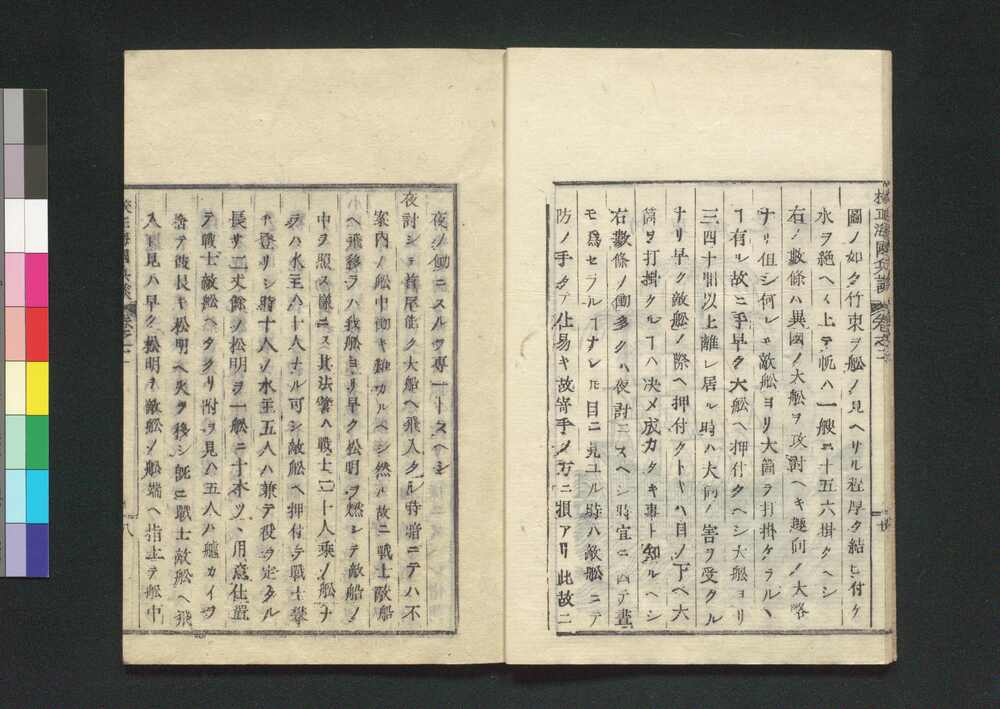 圖ノ如ク竹束ヲ舩ノ見ヘサル程厚ク結ヒ付ケ
水ヲ絶ヘス上テ帆ハ一艘ニ十五六掛クヘシ
右ノ數條ハ異國ノ大舩ヲ攻討ヘキ趣向ノ大略
ナリ但シ何レモ敵舩ヨリ大筒ヲ打掛ケラルヽ
ヿ有ル故ニ手早ク大舩ヘ押付クヘシ大舩ヨリ
三四十間以上離レ居ル時ハ大筒ノ害ヲ受クル
ナリ早ク敵舩ノ際ヘ押付クトキハ目ノ下ヘ大
筒ヲ打掛クルヿハ决メ成カタキ事ト知ルヘシ
右數條ノ働多クハ夜討ニスヘシ時宜ニ因テ晝
モ爲セラルヿナレ𪜈目ニ見ユル時ハ敵舩ニテ
防ノ手タテ仕易キ故寄手ノ方ニ損アリ此故ニ
夜ノ働ニスルヲ專一トスヘシ
夜討シテ首尾能ク大舩ヘ飛入タル時暗ニテハ不
案内ノ舩中働キ難カルヘシ然ル故ニ戰士敵船
ヘ飛移ラハ我舩ヨリ早ク松明ヲ燃シテ敵船ノ
中ヲ照ス樣ニス其法譬ハ戰士二十人乘ノ舩ナ
ラハ水主ハ十人ナル可シ敵舩ヘ押付テ戰士攀
チ登リシ時十人ノ水主五人ハ兼テ役ヲ定タル
長サ二丈餘ノ松明ヲ一舩ニ十本ツヽ用意仕置
テ戰士敵舩ヘタクリ附ヲ見ハ五人ハ艫カイヲ
舎テ彼長キ松明ヘ火ヲ移シ既ニ戰士敵舩ヘ飛
入ト見ハ早ク松明ヲ敵舩ノ舩端ヘ指上テ舩中
八